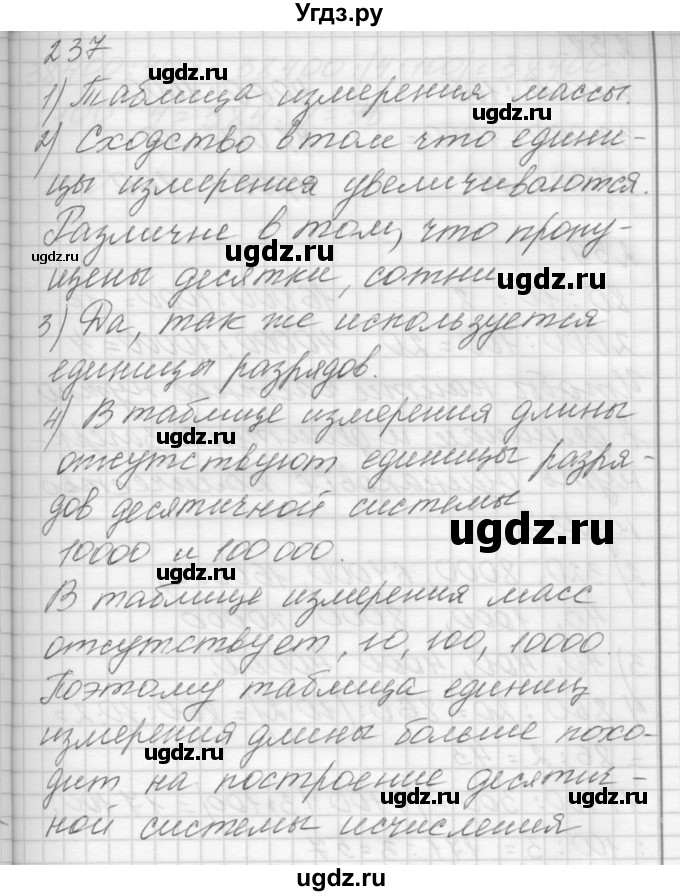 Угдз.ру
237
ugdz.ru
1) Таблица измерения массы.
ugdz.ru
2) Сходство в том что едини-
цы измерения увеличиваются.
ugdz.ru
Различие в том, что пропу-
ugdz.ru
щены десятки, сотни
ugdz.ru
3) Да, так же используется
ugdz.ru
единицы разрядов.
ugdz.ru
4) В таблице измерения длины
ugdz.ru
отсутствуют единицы разря-
дов десятичной системы
ugdz.ru
10000 и 100000.
ugdz.ru
В таблице измерения масс
отсутствует, 10, 100, 10000.
Поэтому таблица единиц
измерения длины больше похо-
ugdz.ru
дит на построение десятич-
ugdz.ru
ugdz.ru
ной системы исчисления